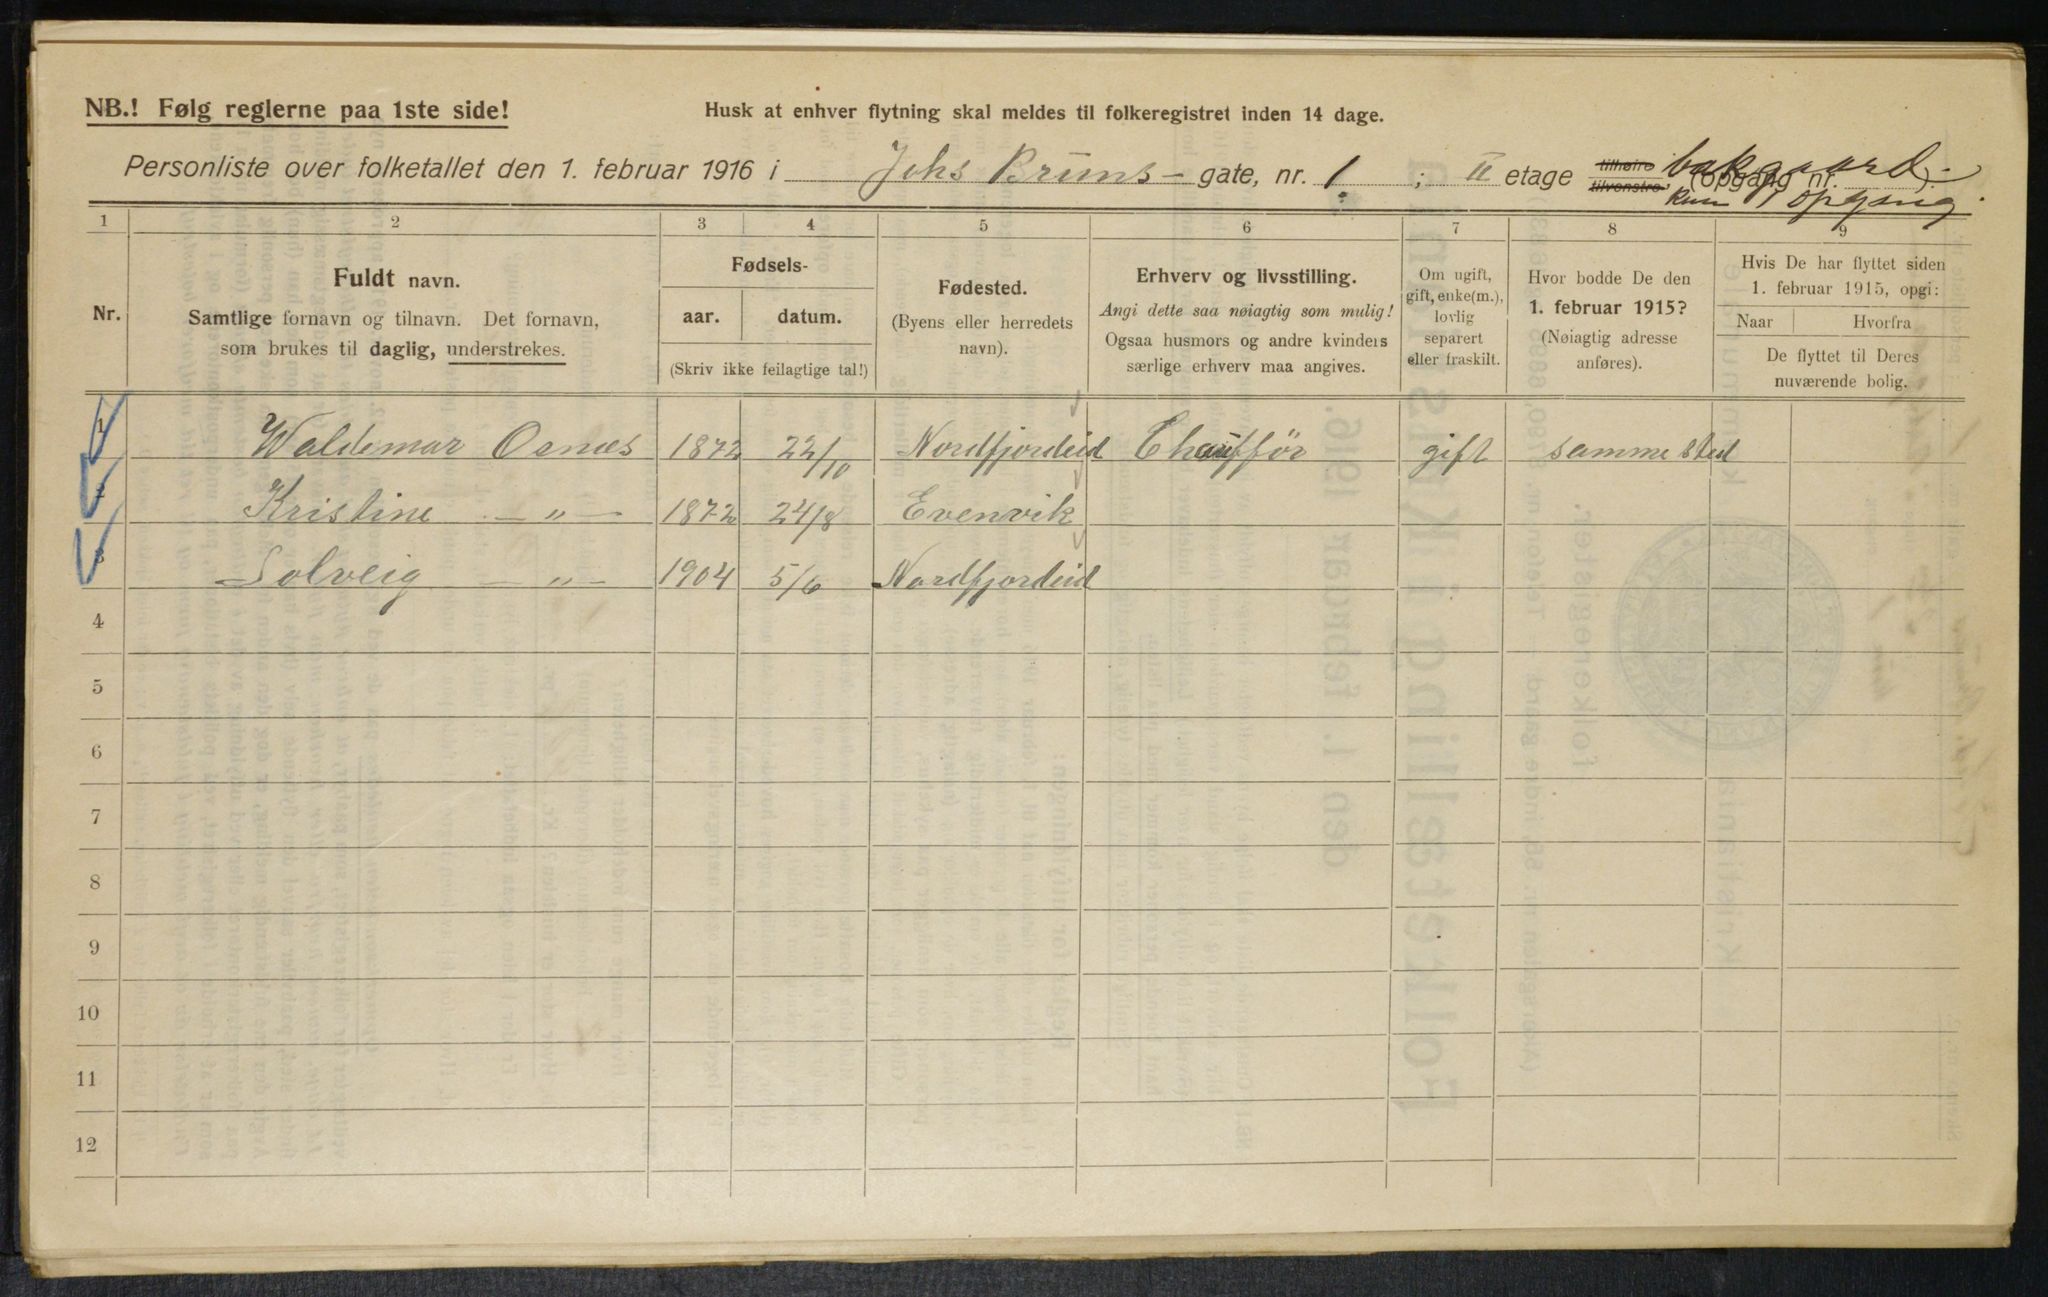 NB.! Følg reglerne paa 1ste side!
Husk at enhver flytning skal meldes til folkeregistret inden 14 dage.
Personliste over folketallet den 1. februar 1916 i Johs Bruns- gate, nr. 1. ; II etage tilhøire tilvenstre, bakgaard. (opgang nr. ).
Kun 1 opgang.
1 2 3 4 5 6 7 8 9
Nr.
Fuldt navn.
Samtlige fornavn og tilnavn. Det fornavn,
som brukes til daglig, understrekes.
Fødsels-
aar. datum.
(Skriv ikke feilagtige tal!)
Fødested.
(Byens eller herredets
navn).
Erhverv og livsstilling.
Angi dette saa nøiagtig som mulig!
Ogsaa husmors og andre kvinders
særlige erhverv maa angives.
Om ugift,
gift, enke(m.),
lovlig
separert
eller fraskilt.
Hvor bodde De den
1. februar 1915?
(Nøiagtig adresse
anføres).
Hvis De har flyttet siden
1. februar 1915, opgi:
Naar Hvorfra
De flyttet til Deres
nuværende bolig.
1 Waldemar Osnæs 1872 22/10 Nordfjordeid Chauffør gift samme sted
2 Kristine — " — 1872 24/8 Evenvik
3 Solveig — " — 1904 5/6 Nordfjordeid
4
5
6
7
8
9
10
11
12